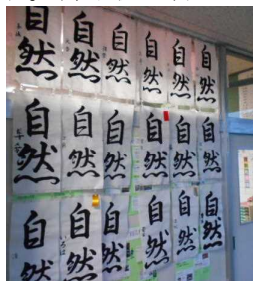 自然 自然 自然 自然 自然 自然
自然 自然 自然 自然 自然 自然
自然 自然 自然 自然 自然 自然